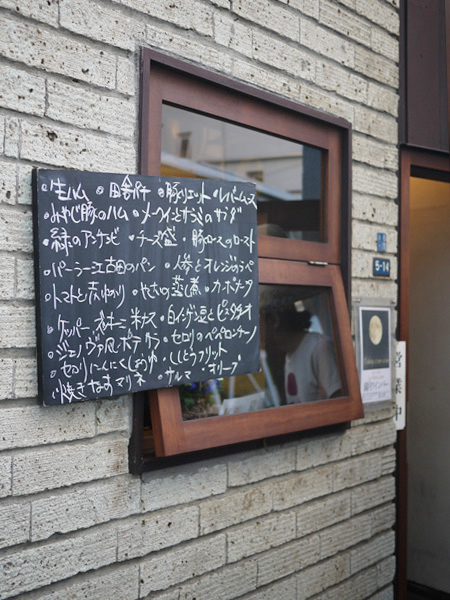 ・生ハム ・田舎パテ ・豚リエット ・レバームース
・みやじ豚のハム ・メークインとすうきのサラダ
・緑のアンチョビ ・チーズ盛 ・豚ロースのロースト
・パーラー江古田のパン ・人参とオレンジのラペ
・トマトと赤ゆかり ・やさいの蒸し煮 ・カポナータ
・ケッパー ・白インゲン豆とピスタチオ
・ジェノヴァ風ポテサラ ・セロリのペペロンチーノ
・セロリにんにくしょうゆ ・ししとうフリット
・焼きなすマリネ ・サルマ ・オリーブ
5-14
営業中